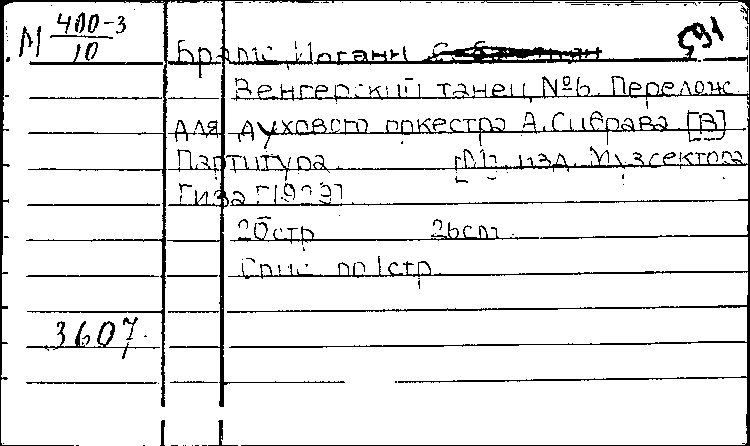 М 400-3/10
591
Брамс, Иоганн
Венгерский танец №6. Перелож.
для духового оркестра А. Сиврава. [В]
Партитура. [М], изд. Музсектора
Гиза [1929].
20 стр 26 см.
Спис. по 1 стр.
3607.